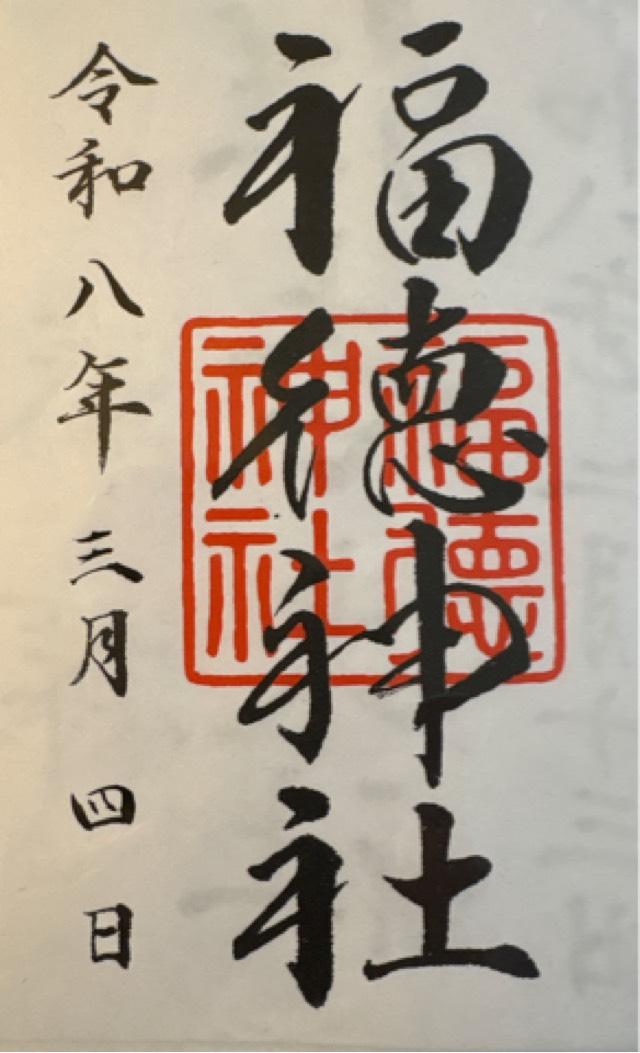 福徳神社
福徳
神社
令和八年三月四日